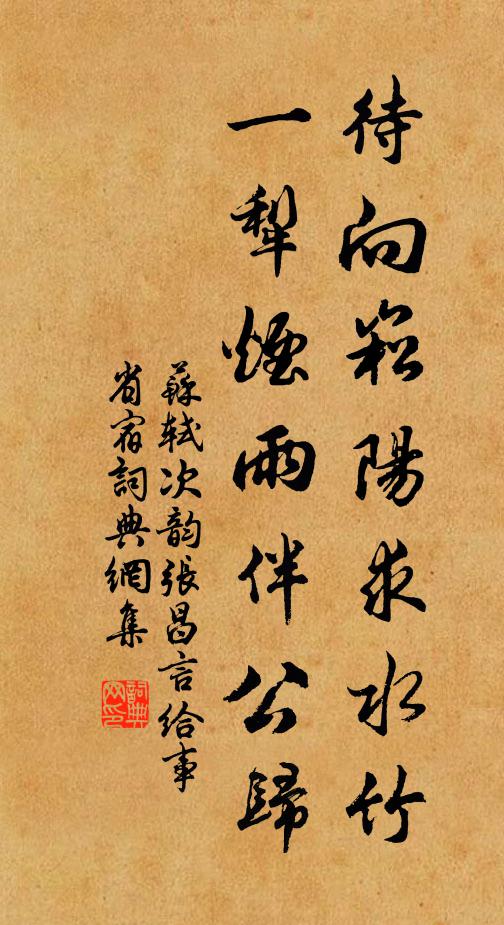 待向崧陽求水竹
一犁煙雨伴公歸
蘇軾次韵張昌言給事
省宿詞典網集
詞典
网印